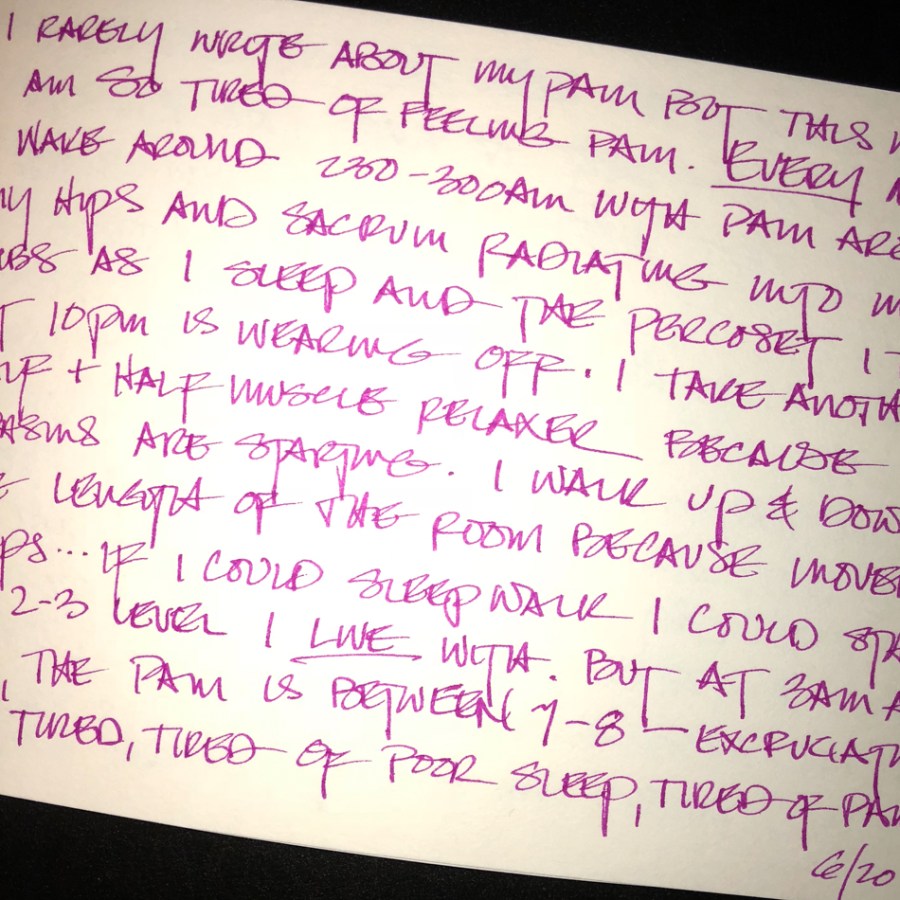 I RARELY WROTE ABOUT MY PAIN BUT THIS
AM SO TIRED OF FEELING PAIN. EVERY
WAKE AROUND 230-300AM WITH PAIN
HIPS AND SACRUM RADIATING INTO
AS I SLEEP AND THE PERCOSET I
10PM IS WEARING OFF. I TAKE
+ HALF MUSCLE RELAXER BECAUSE
ARE STARTING. I WALK UP & DOW
LENGTH OF THE ROOM BECAUSE
... IF I COULD SLEEPWALK I COULD
2-3 LEVEL I LIVE WITH. BUT AT 3AM
THE PAIN IS BETWEEN 7-8 - EXCRUCIAT
TIRED, TIRED OF POOR SLEEP, TIRED OF
6/20